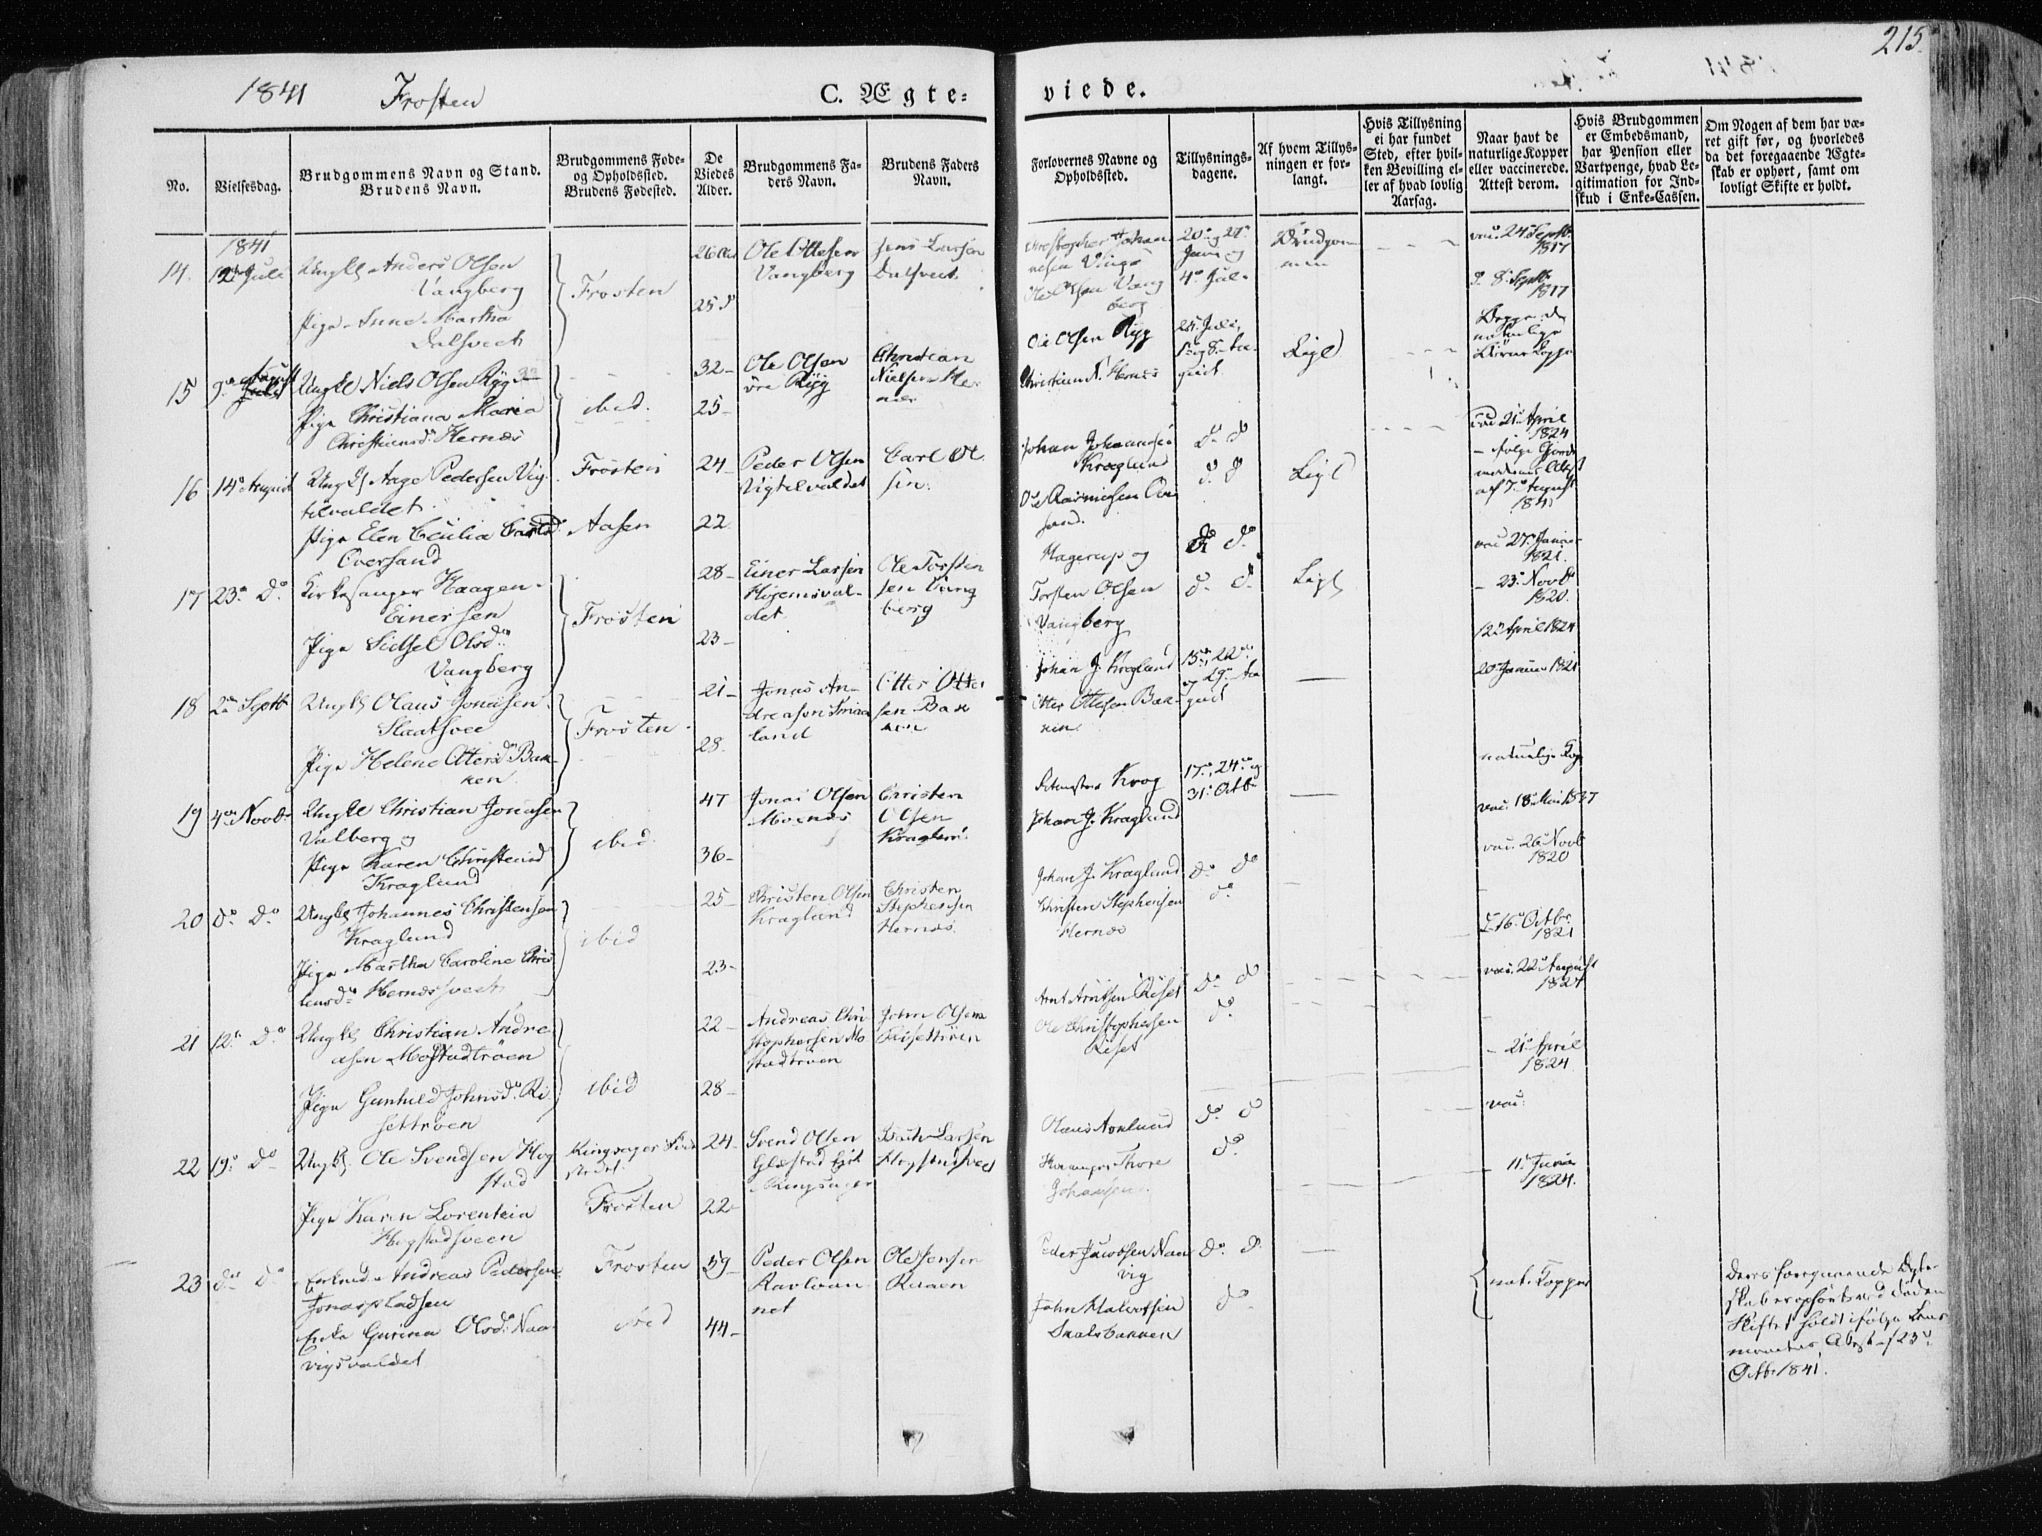 1841 Frosten
C. Ægte-
viede.
215.
No.
Vielsesdag.
Brudgommens Navn og Stand.
Brudens Navn.
Brudgommens Føde-
og Opholdssted.
Brudens Fødested.
De
Viedes
Alder.
Brudgommens Fa-
ders Navn.
Brudens Faders
Navn.
Forlovernes Navne og
Opholdssted.
Tillysnings-
dagene.
Af hvem Tillys-
ningen er for-
langt.
Hvis Tillysning
ei har fundet
Sted, efter hvil-
ken Bevilling el-
ler af hvad lovlig
Aarsag.
Naar havt de
naturlige Kopper
eller vaccinerede.
Attest derom.
Hvis Brudgommen
er Embedsmand,
har Pension eller
Vartpenge, hvad Le-
gitimation for Ind-
skud i Enke-Cassen.
Om Nogen af dem har væ-
ret gift før, og hvorledes
da det foregaaende Ægte-
skab er ophørt, samt om
lovligt Skifte er holdt.
1841
14. 12 Juli
Ungkl Anders Olsen
Vangberg
Pige Anne Martha
Dalsveet
Frosten
26
25
Ole Ottesen
Vangberg
Jens Larsen
Dalsveet
Christopher Johan
nesen
Ole Olsen Vang
berg
4de Juli
Brudgom
men
vac. 24 Septb
1817
8 Septb
1817
15
Ungkl Niels Olsen Ryg
Pige Christiana Maria
Christiansd. Hernæs
ibid.
32
25
Ole Olsen
Ryg
Christian
Nielsen Her
næs
Ole Olsen Ryg
Christian N. Hernæs
Lige
Begge de
naturlige
Kopper
16 14 August
Ungk Aage Pedersen Vig
tilvaldet
Pige Elen Cecilia Carlsd
Oversand
Frosten
Aasen
24
22
Peder Olsen
Vigtilvaldet
Carl Ol
sen.
Johan Johannesen
Kraglund
Ole Rasmussen Over
sand.
d. d
Lige
vac 21 April
1824
af 7de August
1841
17 23de Do
Kirkesanger Haagen
Einersen
Pige Sidsel Olsdn
Vangberg
Frosten
28
23
Einer Larsen
Højemsval-
det
Ole Torsten
sen Vang
berg
Hagerup og
Torsten Olsen
Vangberg
do do.
Lige
vac 27 Januar
1821.
23 Novb
1820.
18 2den Septb
Ungk Olaus Jonassen
Slaatsvee
Pige Helene Ottersdn Bak-
ken
Frosten
21
28
Jonas An-
dreasen
land
Otter Otter
sen Bak
ken
Johan J. Kraglund
Otter Ottesen Bak-
ken
15de, 22de
og 29de Au
gust
12 April 1824
20 Januar 1821
19 4de Novb
Ungkl Christian Jonassen
Valberg og
Pige Karen Christensd
Kraglund
ibid.
47
36
Jonas Olsen
Moenæs
Christen
Olsen
Kraglund
Krog
Johan J. Kraglund
17de, 24de og
31 Octbr
naturlige Kop
vac. 18 Mai 1837
20 Do Do
Ungk Johannes Christensen
Kraglund
Pige Martha Caroline Chris
tensdn Hernæsveet
ibid
25
23
Christen Olsen
Kraglund
Christen
Stephensen
Hernæs
Johan J. Kraglund
Christen Stephensen
Hernæs
do do
do
vac. 26 Novb
1820
16 Octbr
1821
21 12te Do
Ungk Christian Andre
asen Mostadtrøen
Pige Gunhild Johnsdn Ri
settrøen
ibid
22
28
Andreas Chri
stophersen Mo
stadtrøen
John Olsen
Risettrøen
Arnt Arntsen Riset
Ole Christophersen
Riset
do do
do
vac. 22 August
1824
21 April
1824
22 19de Do
Ungk. Ole Svendsen Hog
stad
Pige Karen Lorentein
Hogstadsveen
Ringsager
Frosten
24
22
Svend Olsen
Glæstad
Ringsager
Larsen
Hogstadsveet
Olaus Aaslund
Thore
Johansen
do do
do
vac:
11 Juni
1824.
23 do do
Enkemd. Andreas Pedersen
Jonaspladsen
Enke Gurina Olsdn Naa
vigsvaldet
Frosten
ibid
59
44
Peder Olsen
Ravloan
net
Ole Jensen
Peder Jacobsen Naa
vig
John Halvorsen
Skalsbakken
do do
do
nat. Kopper
Deres foregaaende Ægte
skab er ophørt ved Døden
Skiftet holdt ifølge Lens
mandens Attest af 23de
Octbr 1841.